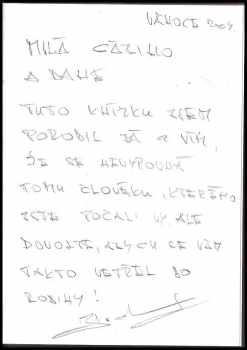 VÁNOCE 2004
MILÁ
A DANE
TUTO KNÍŽKU JSEM
PORODIL JÁ A VÍM,
ŽE SE NEVYROVNÁ
TOMU ČLOVĚKU, KTERÉHO
JSTE POČALI VY, ALE
DOVOLTE, ABYCH SE VÁM
TAKTO VETŘEL DO
RODINY!